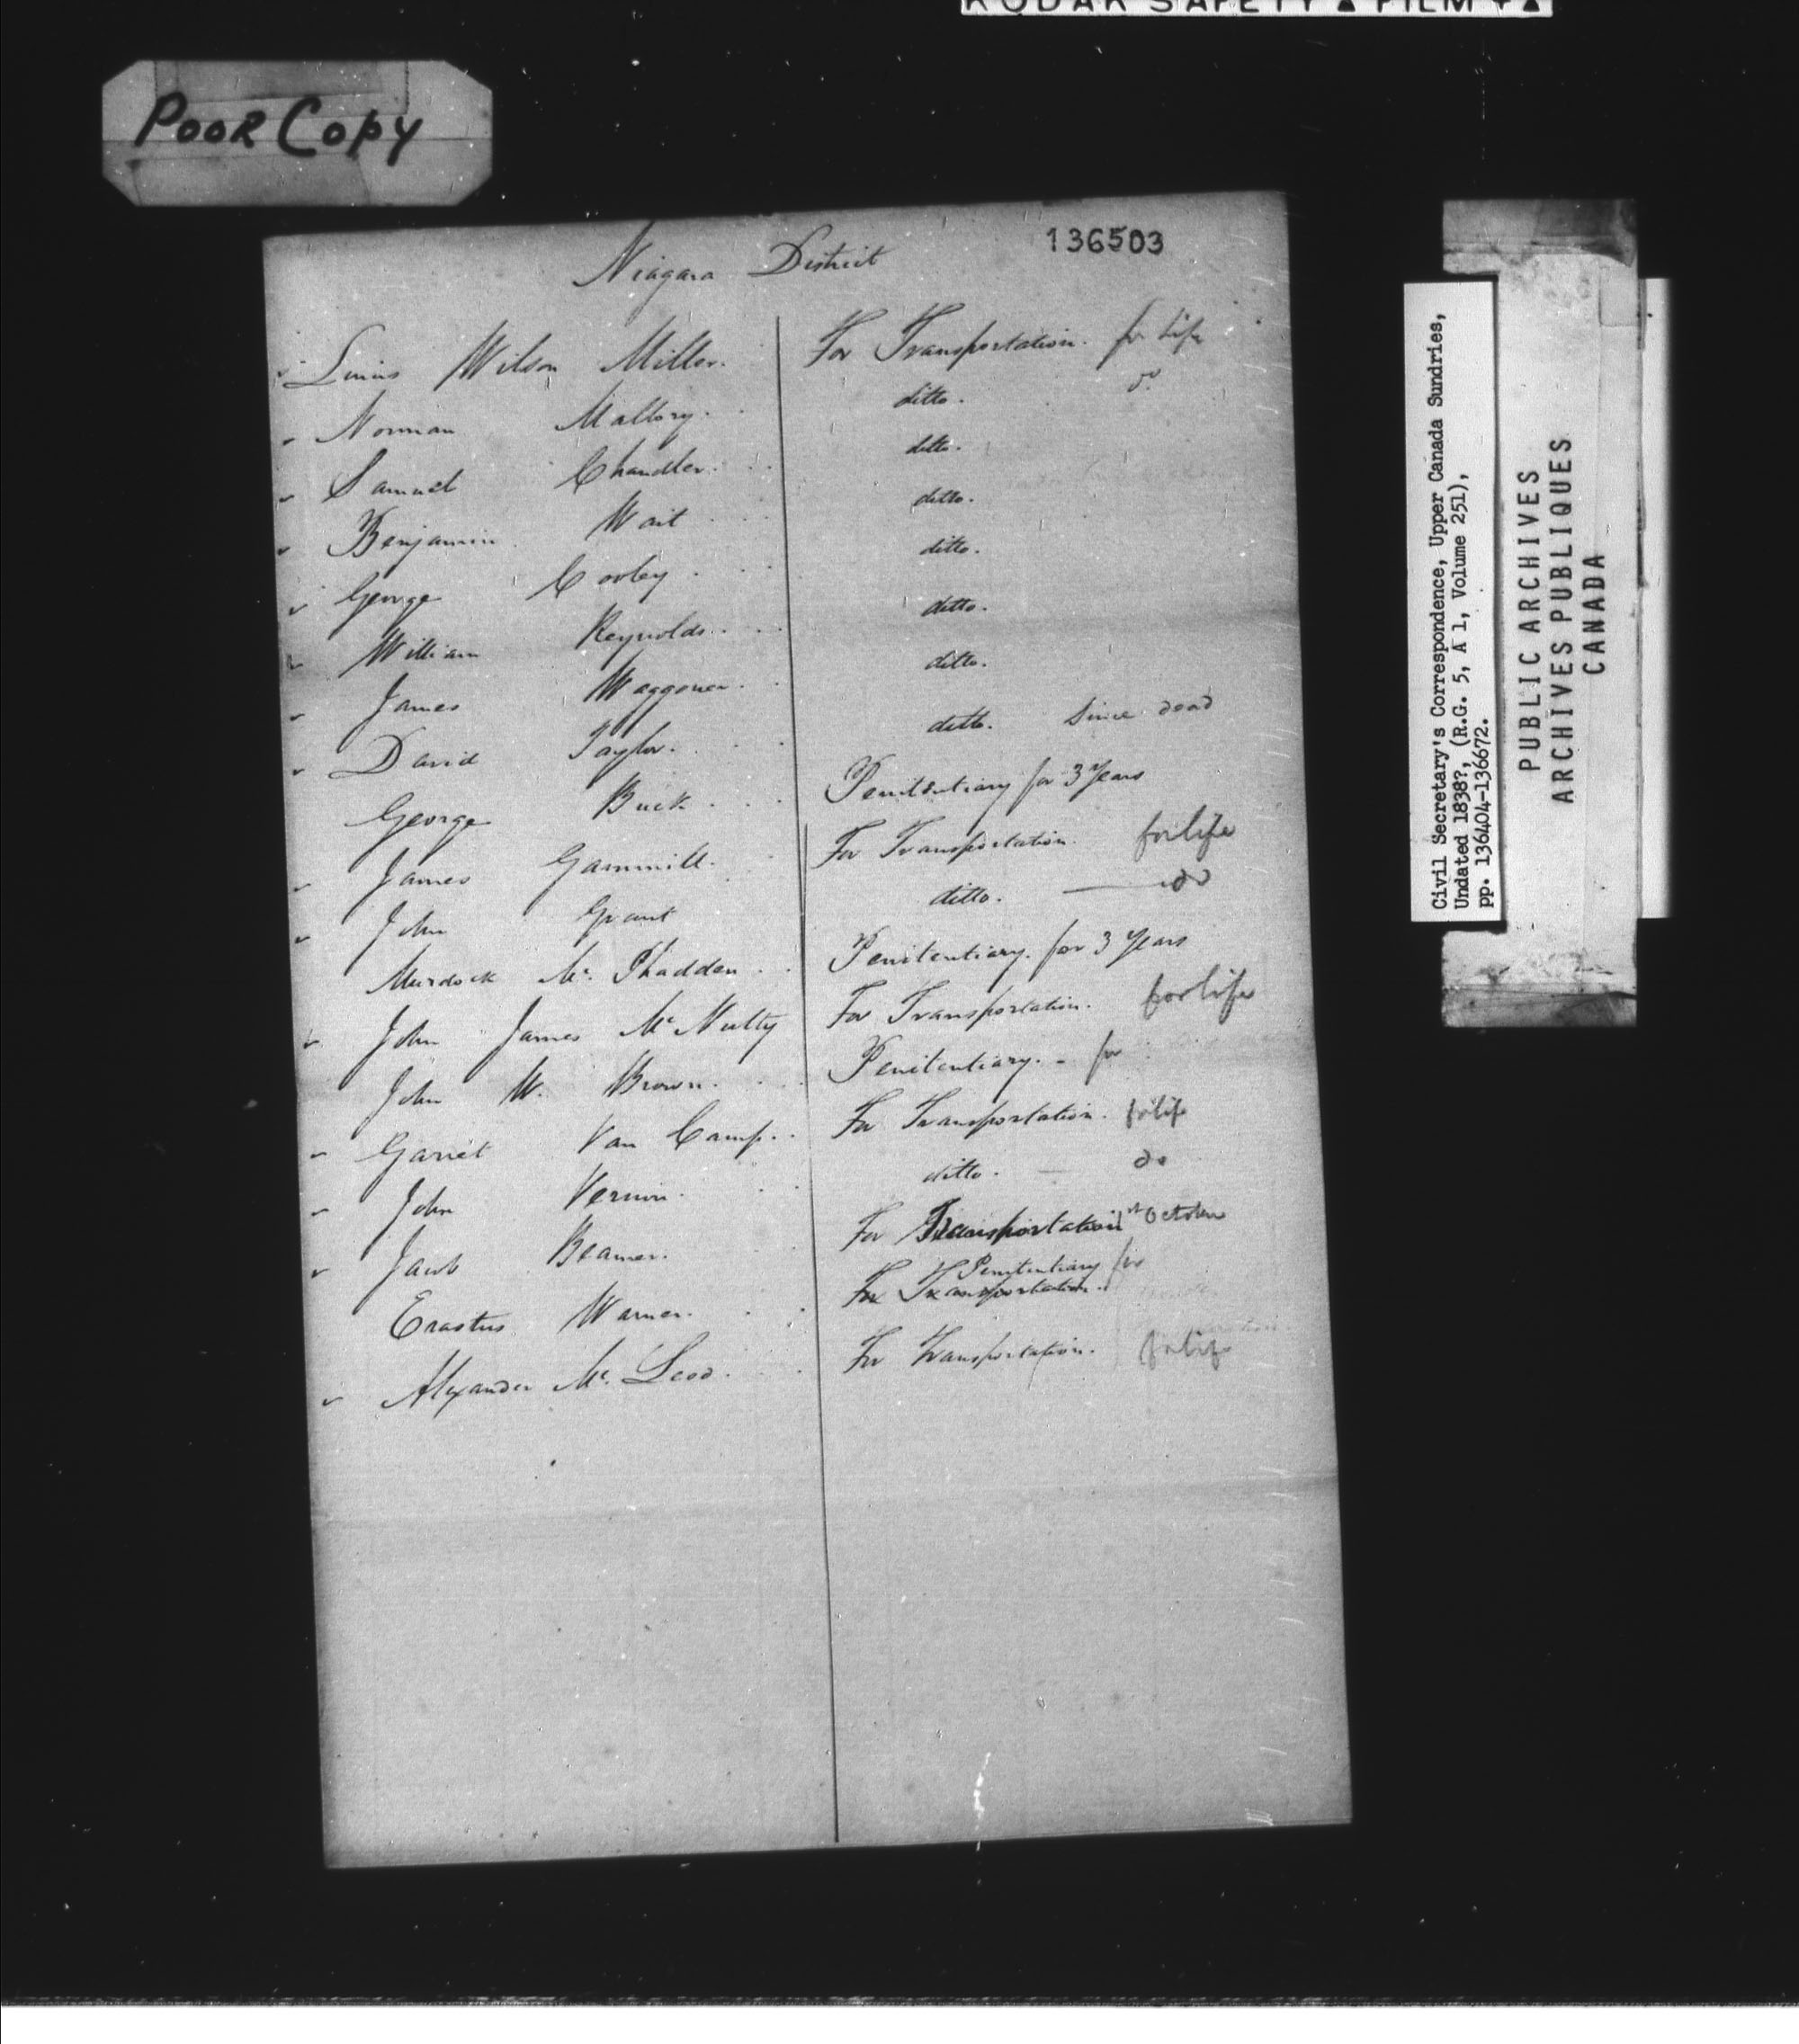 KODAK SAFETY ▲ FILM + ▲
POOR COPY
136503
Niagara District
Linus Wilson Miller. For Transportation. for Life
Norman Mallory. ditto. do
Samuel Chandler. ditto.
Benjamin Wait ditto.
George Cooley ditto.
William Reynolds. ditto.
James Waggoner. ditto.
David Taylor. ditto. Since dead
George Buck Penitentiary for 3 Years
James Gammill. For Transportation. for life
John Grant ditto. do
Murdock Mc. Phadden Penitentiary. for 3 Years
John James McNulty For Transportation. for life
John W. Brown. Penitentiary. - for
Garret Van Camp. For Transportation. for life
John Vernon. ditto. do
Jacob Beamer. For Transportation October
Erastus Warner. For Transportation. Penitentiary for
Alexander Mc. Leod. For Transportation. for life
Civil Secretary's Correspondence, Upper Canada Sundries,
Undated 1838?, (R.G. 5, A 1, Volume 251),
pp. 136404-136672.
PUBLIC ARCHIVES
ARCHIVES PUBLIQUES
CANADA